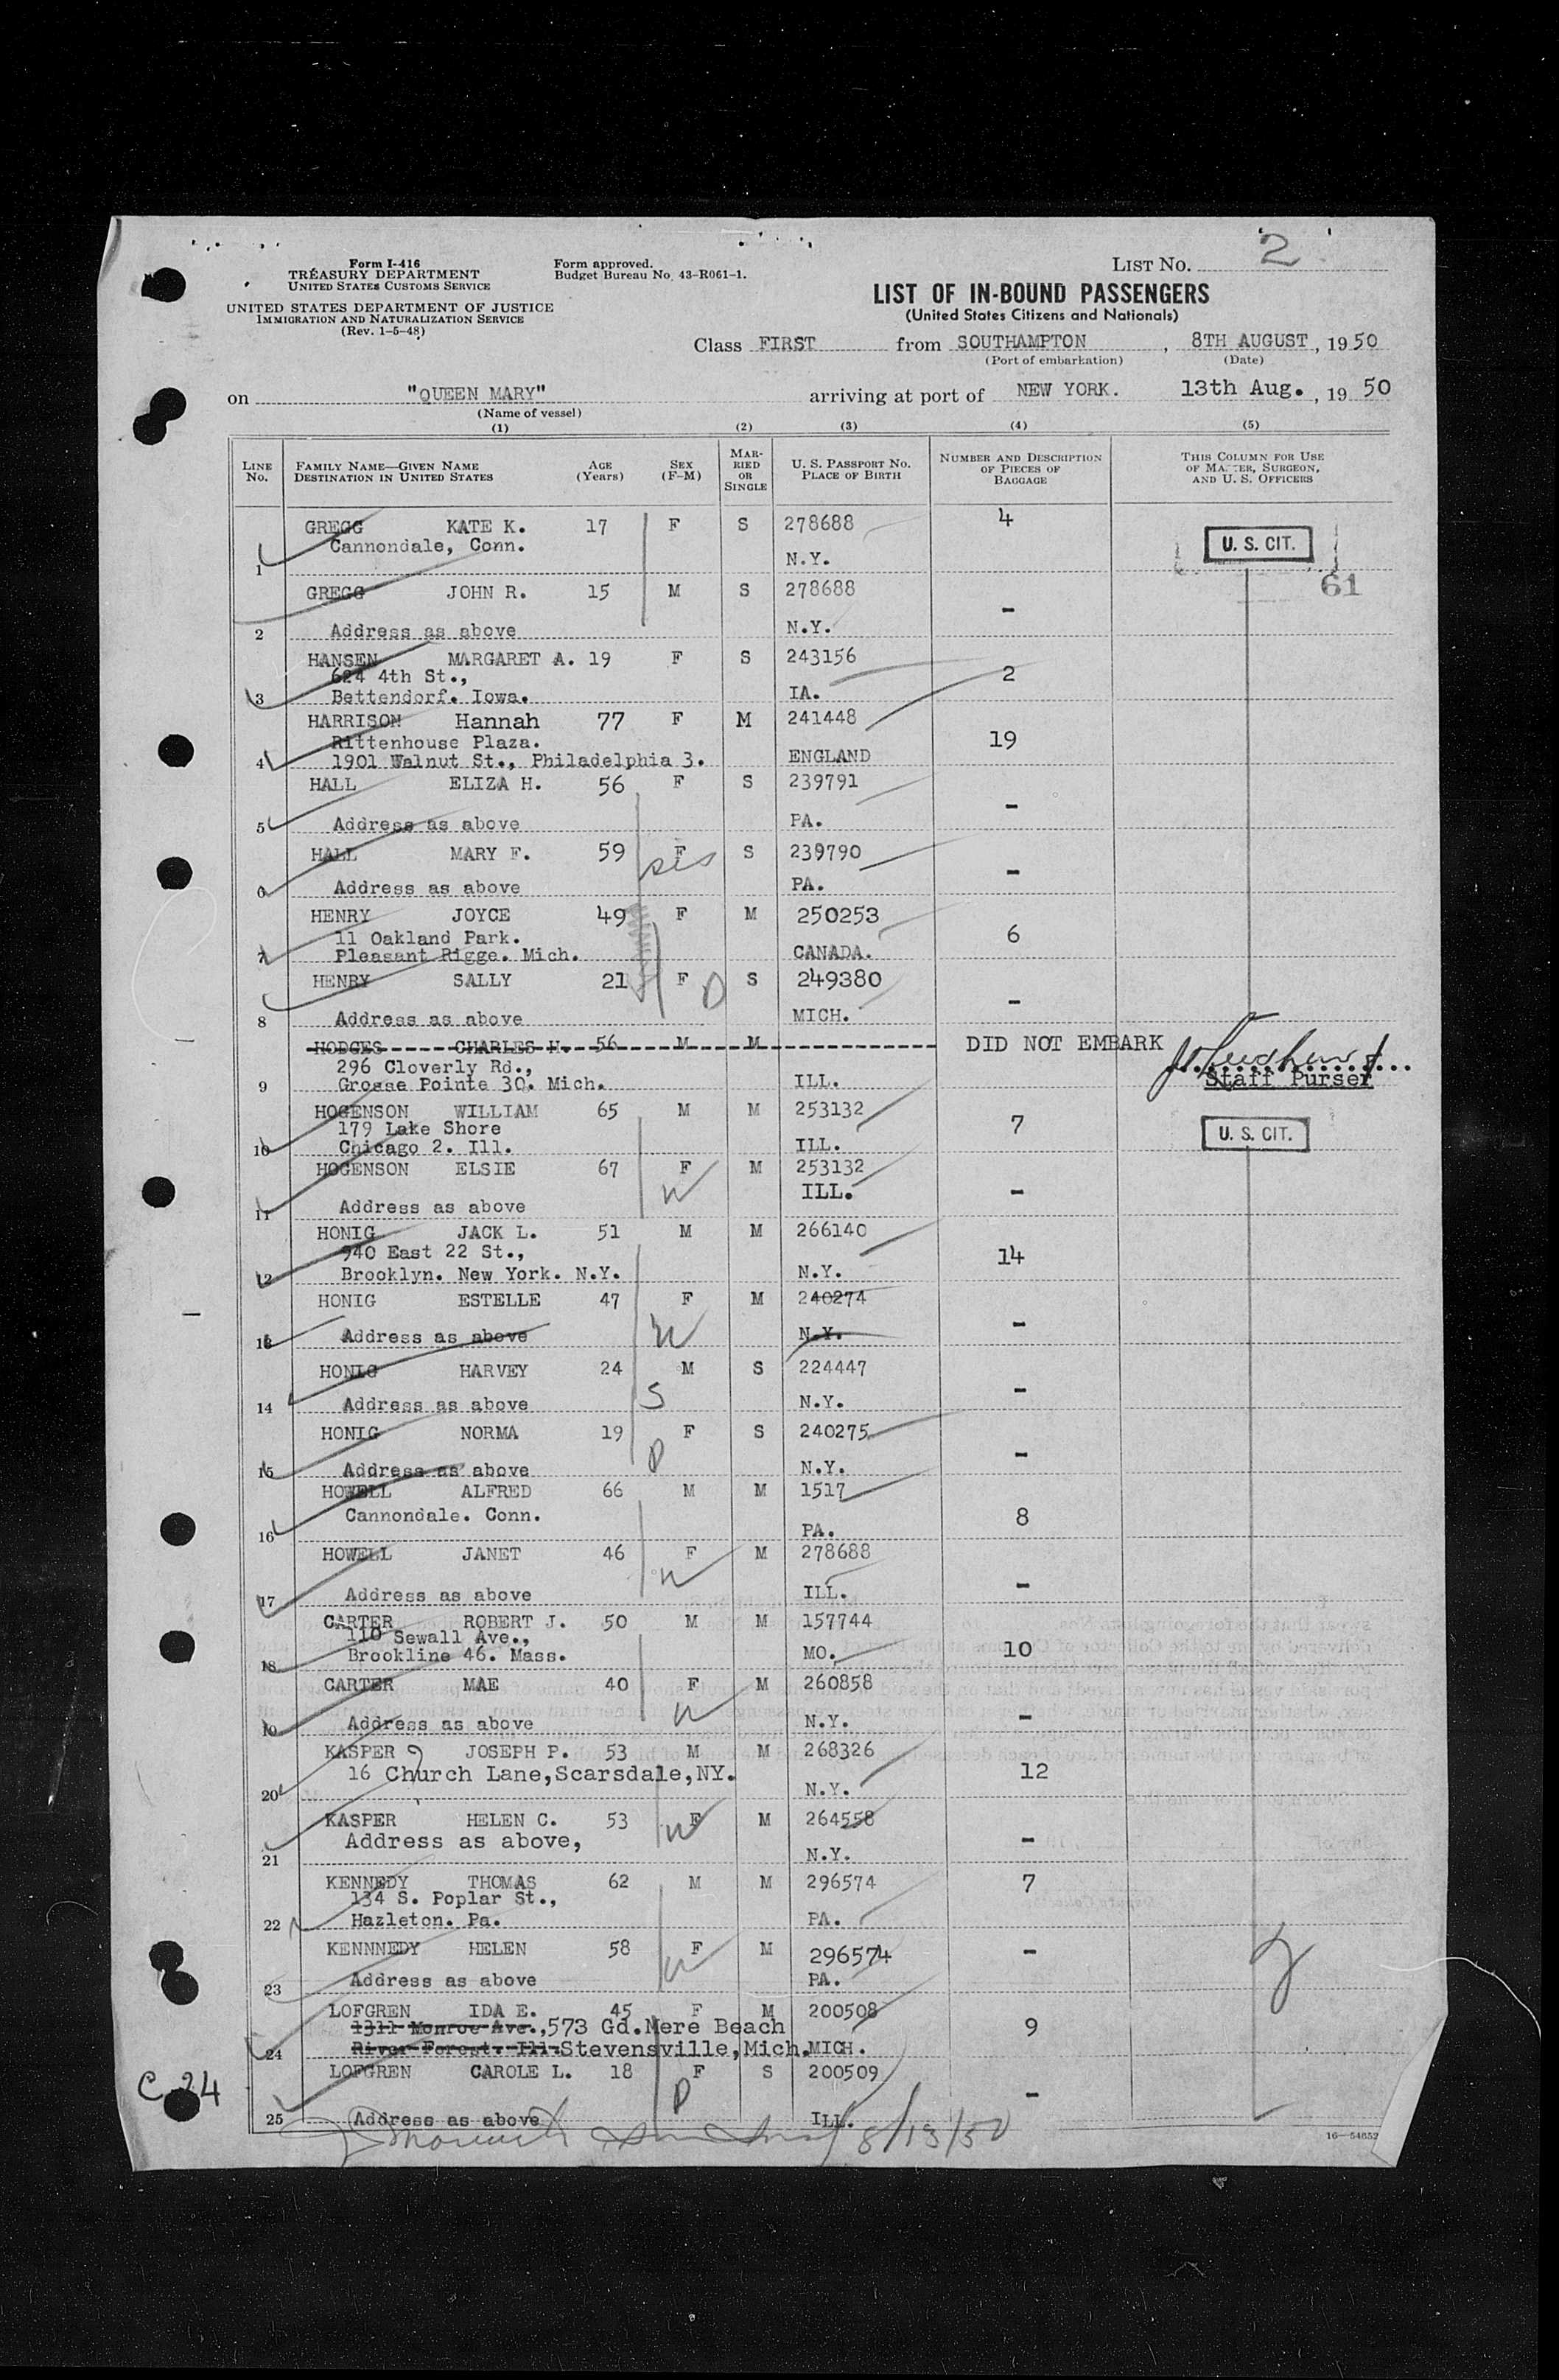 Form I-416
TREASURY DEPARTMENT
UNITED STATES CUSTOMS SERVICE
UNITED STATES DEPARTMENT OF JUSTICE
IMMIGRATION AND NATURALIZATION SERVICE
(Rev. 1-5-48)
Form approved.
Budget Bureau No. 43-R061-1.
LIST NO. 2
LIST OF IN-BOUND PASSENGERS
(United States Citizens and Nationals)
Class FIRST from SOUTHAMPTON, 8TH AUGUST, 1950
(Port of embarkation) (Date)
on "QUEEN MARY" arriving at port of NEW YORK. 13th Aug., 1950
(Name of vessel)
(1) (2) (3) (4) (5)
LINE No. FAMILY NAME—GIVEN NAME DESTINATION IN UNITED STATES AGE (Years) SEX (F-M) MARRIED OR SINGLE U. S. PASSPORT No. PLACE OF BIRTH NUMBER AND DESCRIPTION OF PIECES OF BAGGAGE THIS COLUMN FOR USE OF MASTER, SURGEON, AND U. S. OFFICERS
GREGG KATE K. 17 F S 278688 4
Cannondale, Conn. U. S. CIT.
1 N.Y.
61
GREGG JOHN R. 15 M S 278688 -
2 Address as above N.Y.
HANSEN MARGARET A. 19 F S 243156 2
624 4th St.,
3 Bettendorf. Iowa. IA.
HARRISON Hannah 77 F M 241448 19
Rittenhouse Plaza.
4 1901 Walnut St., Philadelphia 3. ENGLAND
HALL ELIZA H. 56 F S 239791 -
5 Address as above PA.
HALL MARY F. 59 F S 239790 -
sis
6 Address as above PA.
HENRY JOYCE 49 F M 250253 6
11 Oakland Park.
7 Pleasant Rigge. Mich. CANADA.
HENRY SALLY 21 F D S 249380 -
8 Address as above MICH.
HODGES CHARLES H. 56 M M DID NOT EMBARK
296 Cloverly Rd.,
9 Grosse Pointe 30. Mich. ILL. Staff Purser
HOGENSON WILLIAM 65 M M 253132 7
179 Lake Shore U. S. CIT.
10 Chicago 2. Ill. ILL.
HOGENSON ELSIE 67 F M 253132 -
W ILL.
11 Address as above
HONIG JACK L. 51 M M 266140 14
940 East 22 St.,
12 Brooklyn. New York. N.Y. N.Y.
HONIG ESTELLE 47 F M 240274 -
W
13 Address as above N.Y.
HONIG HARVEY 24 M S 224447 -
S
14 Address as above N.Y.
HONIG NORMA 19 F S 240275 -
D
15 Address as above N.Y.
HOWELL ALFRED 66 M M 1517 8
Cannondale. Conn.
16 PA.
HOWELL JANET 46 F M 278688 -
W
17 Address as above ILL.
CARTER ROBERT J. 50 M M 157744 10
110 Sewall Ave.,
18 Brookline 46. Mass. MO.
CARTER MAE 40 F M 260858 -
W
19 Address as above N.Y.
KASPER JOSEPH P. 53 M M 268326 12
16 Church Lane,Scarsdale,NY.
20 N.Y.
KASPER HELEN C. 53 F M 264558 -
W
Address as above,
21 N.Y.
KENNEDY THOMAS 62 M M 296574 7
134 S. Poplar St.,
22 Hazleton. Pa. PA.
KENNNEDY HELEN 58 F M 296574 -
W
23 Address as above PA.
LOFGREN IDA E. 45 F M 200508 9
1311 Monroe Ave.,573 Gd.Mere Beach
24 River Forest. Ill.Stevensville,Mich. MICH.
LOFGREN CAROLE L. 18 F S 200509 -
D
C 24
25 Address as above ILL.
8/13/50
16—54652